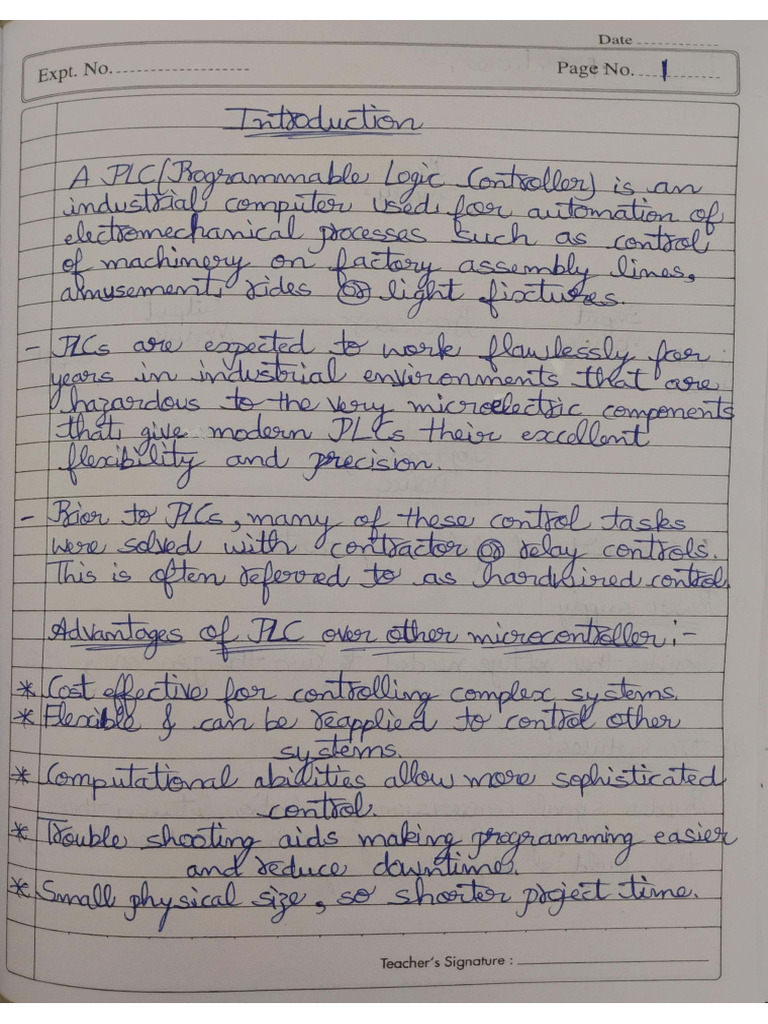 Date
Expt. No.
Page No. 1
Introduction
A PLC (Programmable Logic Controller) is an
industrial computer used for automation of
electromechanical processes such as control
of machinery on factory assembly lines,
amusement rides or light fixtures.
- PLCs are expected to work flawlessly for
years in industrial environments that are
hazardous to the very microelectric components
that give modern PLCs their excellent
flexibility and precision.
- Prior to PLCs, many of these control tasks
were solved with contractor or relay controls.
This is often referred to as hardwired control.
Advantages of PLC over other microcontroller:-
* Cost effective for controlling complex systems.
* Flexible & can be reapplied to control other
systems.
* Computational abilities allow more sophisticated
control.
* Trouble shooting aids making programming easier
and reduce downtime.
* Small physical size, so shorter project time.
Teacher's Signature :